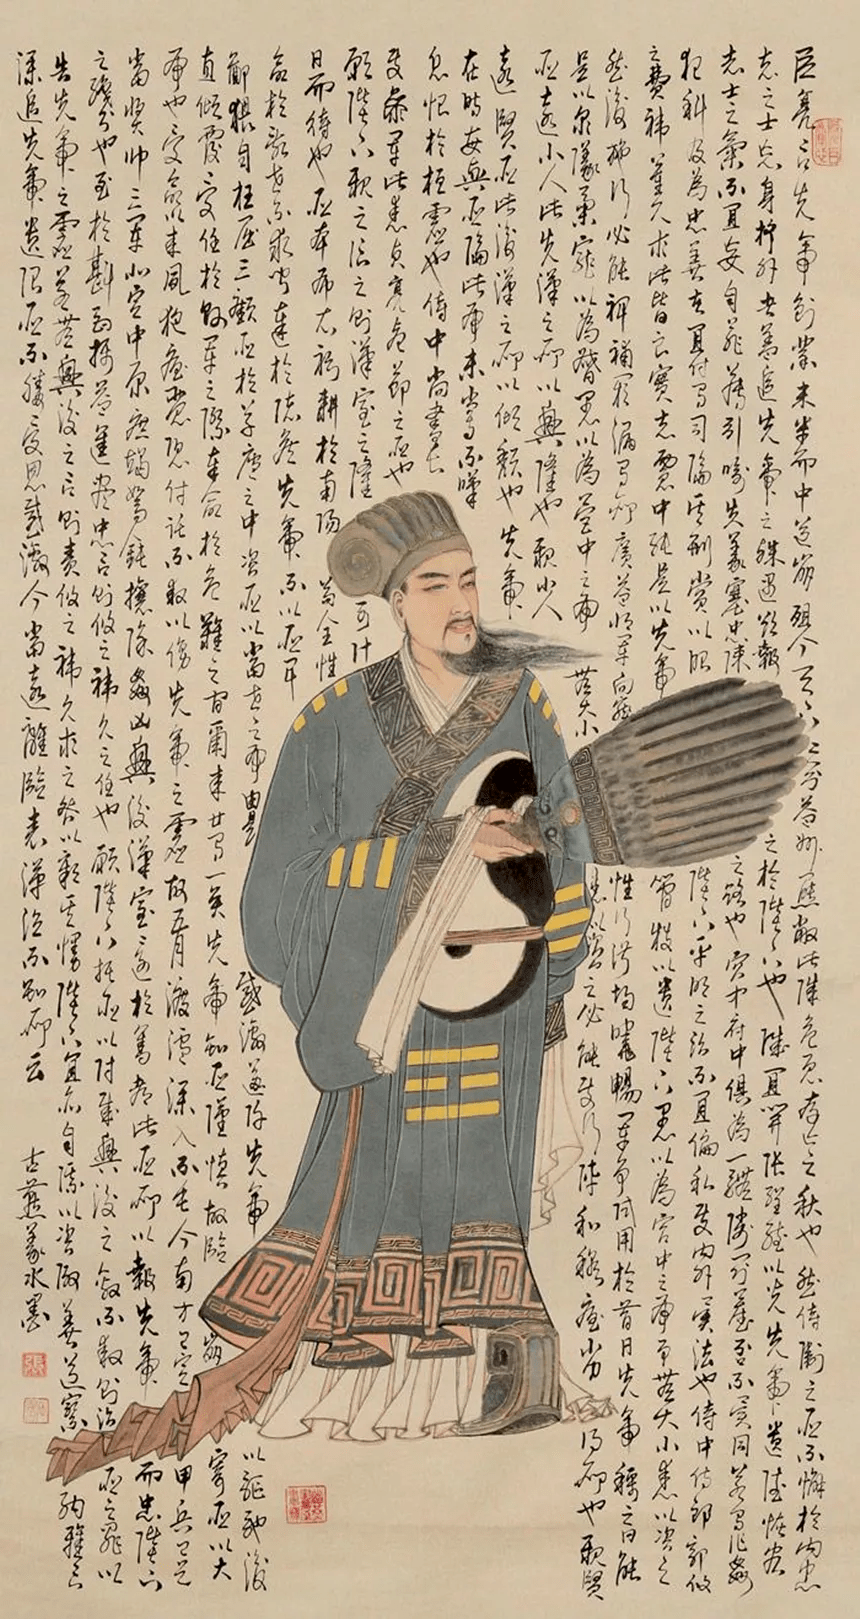 臣亮言先帝創業未半而中道崩殂今天下三分益州疲敝此誠危急存亡之秋也然侍衛之臣不懈於內忠
志之士忘身於外者蓋追先帝之殊遇欲報之於陛下也誠宜開張聖聽以光先帝遺德恢宏
志士之氣不宜妄自菲薄引喻失義塞忠諫之路也宮中府中俱為一體陟罰臧否不宜同若有作姦
犯科及為忠善者宜付有司論其刑賞以昭陛下平明之治不宜偏私使內外異法也侍中侍郎郭攸
之費禕董允等此皆良實志慮忠純是以先帝簡拔以遺陛下愚以為宮中之事事無大小悉以咨之
然後施行必能裨補闕漏有所廣益將軍向寵性行淑均曉暢軍事試用於昔日先帝稱之曰能
是以眾議舉寵以為督愚以為營中之事無大小悉以咨之必能使行陣和穆優劣得所也親賢
臣遠小人此先漢之所以興隆也親小人
遠賢臣此後漢之所以傾頹也先帝
在時每與臣論此事未嘗不嘆
息恨於桓靈也侍中尚書長
史參軍此悉貞亮死節之臣也
願陛下親之信之則漢室之隆可計
日而待也臣本布衣躬耕於南陽苟全性
命於亂世不求聞達於諸侯先帝不以臣卑
鄙猥自枉屈三顧臣於草廬之中咨臣以當世之事由是感激遂許先帝以驅馳後
值傾覆受任於敗軍之際奉命於危難之間爾來廿有一矣先帝知臣謹慎故臨崩寄臣以大
事也受命以來夙夜憂思恐付託不效以傷先帝之靈故五月渡瀘深入不毛今南方已定甲兵已足
當獎帥三軍北定中原庶竭駑鈍攘除姦凶興復漢室還於舊都此臣所以報先帝而忠陛下
之職分也至於斟酌損益進盡忠言則攸之禕允之任也願陛下托臣以討賊興復之效不效則治臣之罪以
告先帝之靈若無興復之言則責攸之禕允等之咎以彰其慢陛下宜亦自謀以咨諏善道察納雅言
深追先帝遺詔臣不勝受恩感激今當遠離臨表涕泣不知所云
古燕義水墨